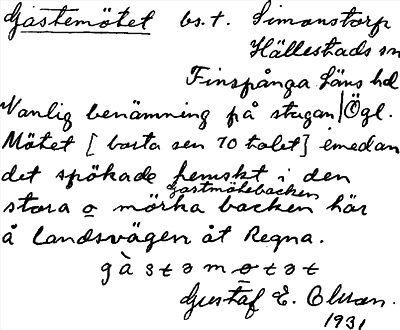 Gastemötet bs.t. Simonstorp
Hällestads sn
Finspånga läns hd
Vanlig benämning på stugan | Ögl.
Mötet [ borta sen 70 talet ] emedan
det spökade hemskt i den
gastmötebacken
stora o mörka backen här
å landsvägen åt Regna.
gàstəmøtət
Gustaf E. Olsson.
1931